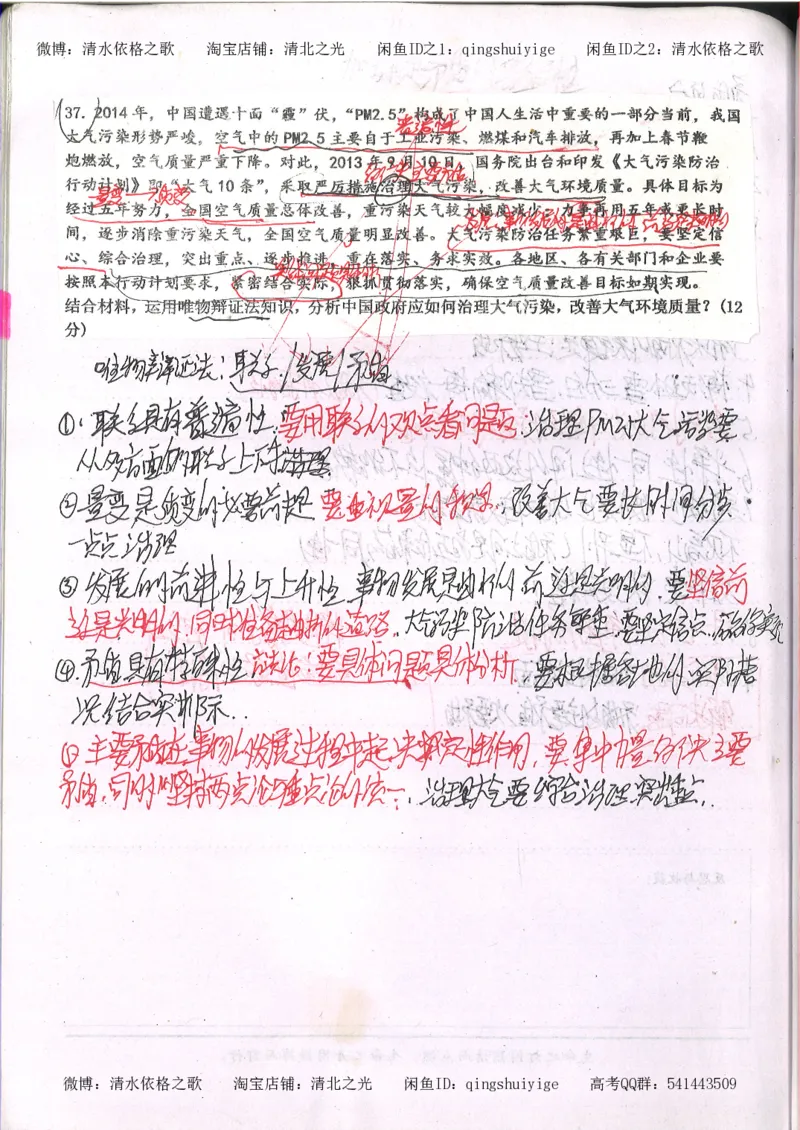 微博：清水依格之歌 淘宝店铺：清北之光 闲鱼ID之1：qingshuiyige 闲鱼ID之2：清水依格之歌
37. 2014年，中国遭遇十面“霾”伏，“PM2.5”构成了中国人生活中重要的一部分当前，我国
普遍性
大气污染形势严峻，空气中的PM2.5主要自于工业污染、燃煤和汽车排放，再加上春节鞭
炮燃放，空气质量严重下降。对此，2013年9月10日，国务院出台和印发《大气污染防治
行动计划》即“大气10条”，采取严厉措施治理大气污染，改善大气环境质量。具体目标为
量变→质变
经过五年努力，全国空气质量总体改善，重污染天气较大幅度减少；力争再用五年或更长时
间，逐步消除重污染天气，全国空气质量明显改善。大气污染防治任务繁重艰巨，要坚定信
心、综合治理，突出重点、逐步推进，重在落实、务求实效。各地区、各有关部门和企业要
按照本行动计划要求，紧密结合实际，狠抓贯彻落实，确保空气质量改善目标如期实现。
结合材料，运用唯物辩证法知识，分析中国政府应如何治理大气污染，改善大气环境质量？(12
分)
唯物辩证法：联系/发展/矛盾
①．联系具有普遍性．要用联系的观点看问题．治理PM2.5大气污染要
从多方面的联系上下手治理
②量变是质变的必要前提 要重视量的积累．改善大气要长时间分步
一点点治理
③发展的前进性与上升性．事物发展是曲折的 前途是光明的．要坚信前
途是光明的．同时准备走曲折的道路．大气污染防治任务繁重．要坚定信心．
④．矛盾具有特殊性 方法论：要具体问题具体分析．要根据各地的实际情
况 结合实际．
⑤主要矛盾在事物的发展过程中起决定性作用．要集中力量解决主要
矛盾．同时坚持两点论与重点论的统一．治理大气要综合治理 突出重点．
微博：清水依格之歌 淘宝店铺：清北之光 闲鱼ID：qingshuiyige 高考QQ群：541443509